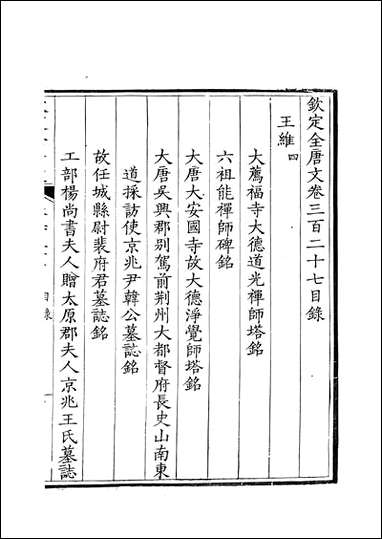 欽定全唐文卷三百二十七目錄
王維四
大薦福寺大德道光禪師塔銘
六祖能禪師碑銘
大唐大安國寺故大德淨覺師塔銘
大唐吳興郡別駕前荆州大都督府長史山南東
道採訪使京兆尹韓公墓誌銘
故任城縣尉裴府君墓誌銘
工部楊尚書夫人贈太原郡夫人京兆王氏墓誌
目錄